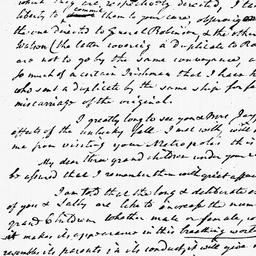 which they are, respectively directed, I ta
liberty to commit them to your care, observing
the one directed to General Robinson, & the othe
Watson (the letter covering a Duplicate to Ro
are not to go by the same conveyance, a
so much of a certain Irishman that I have h
who sent a duplicate by the same ship for fe
miscarriage of the original.
I greatly long to see you & Mrs Jay,
effects of the unlucky fall I met with, will
me from visiting your Metropolis thi
My dear three grand children under your
be assured that I remember them with great
I am told that the long & deliberate
of you & Sally are like to increase the num
grand Children whether male or female,
it makes its appearance in this troubling world
resembles its parents in its conduct, it will give